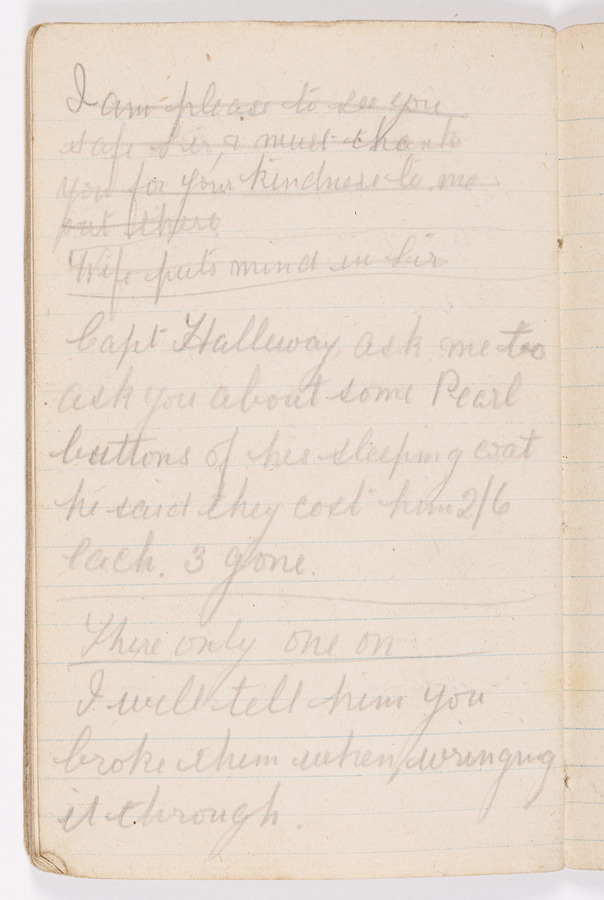 I am please to see you
safe Sir, & must thank
you for your kindness to me
out there
Wife puts mind in Sir
Capt Halleway ask me too
ask you about some Pearl
buttons of his sleeping coat
he said they cost him 2/6
each. 3 gone.
There only one on
I will tell him you
broke them when wringing
it through.